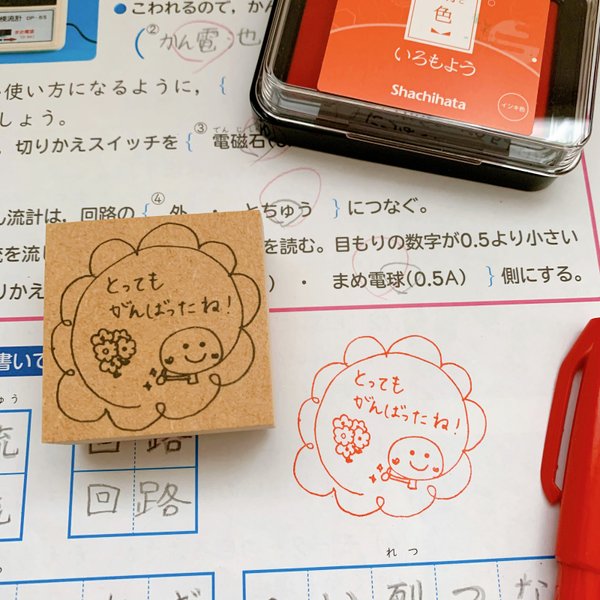 検流計 DP-5S
こわれるので、かん
② かん電 也
い使い方になるように、{
しょう。
、切りかえスイッチを { ③ 電磁石
でんじしゃく
ん流計は、回路の { ④ 外 ・ とちゅう } につなぐ。
を読む。目もりの数字が0.5より小さい
りかえ
) ・ まめ電球(0.5A) } 側にする。
色
いろもよう
Shachihata
とっても
がんばったね!
とっても
がんばったね!
書いて
回路
回路
れつ
列 つ な